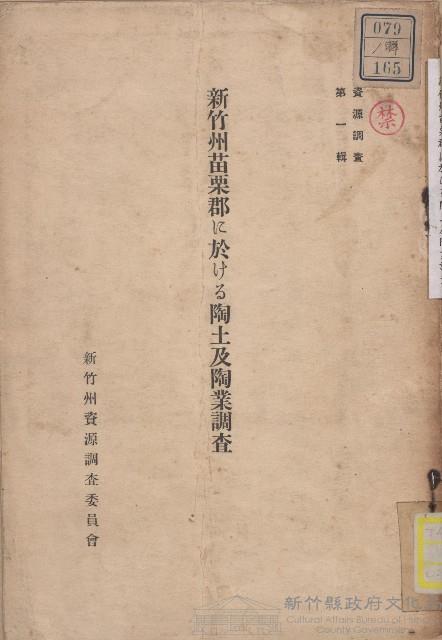 079
165
禁
資源調查
第一輯
新竹州苗栗郡に於ける陶土及陶業調查
新竹州資源調查委員會
新竹縣政府文化
Cultural Affairs Bureau of H
County Government